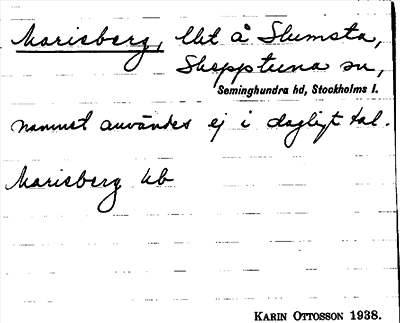 Marisberg, lht å Slumsta,
Skepptuna sn,
Seminghundra hd, Stockholms l.
namnet användes ej i dagligt tal.
Marisberg kb
KARIN OTTOSSON 1938.